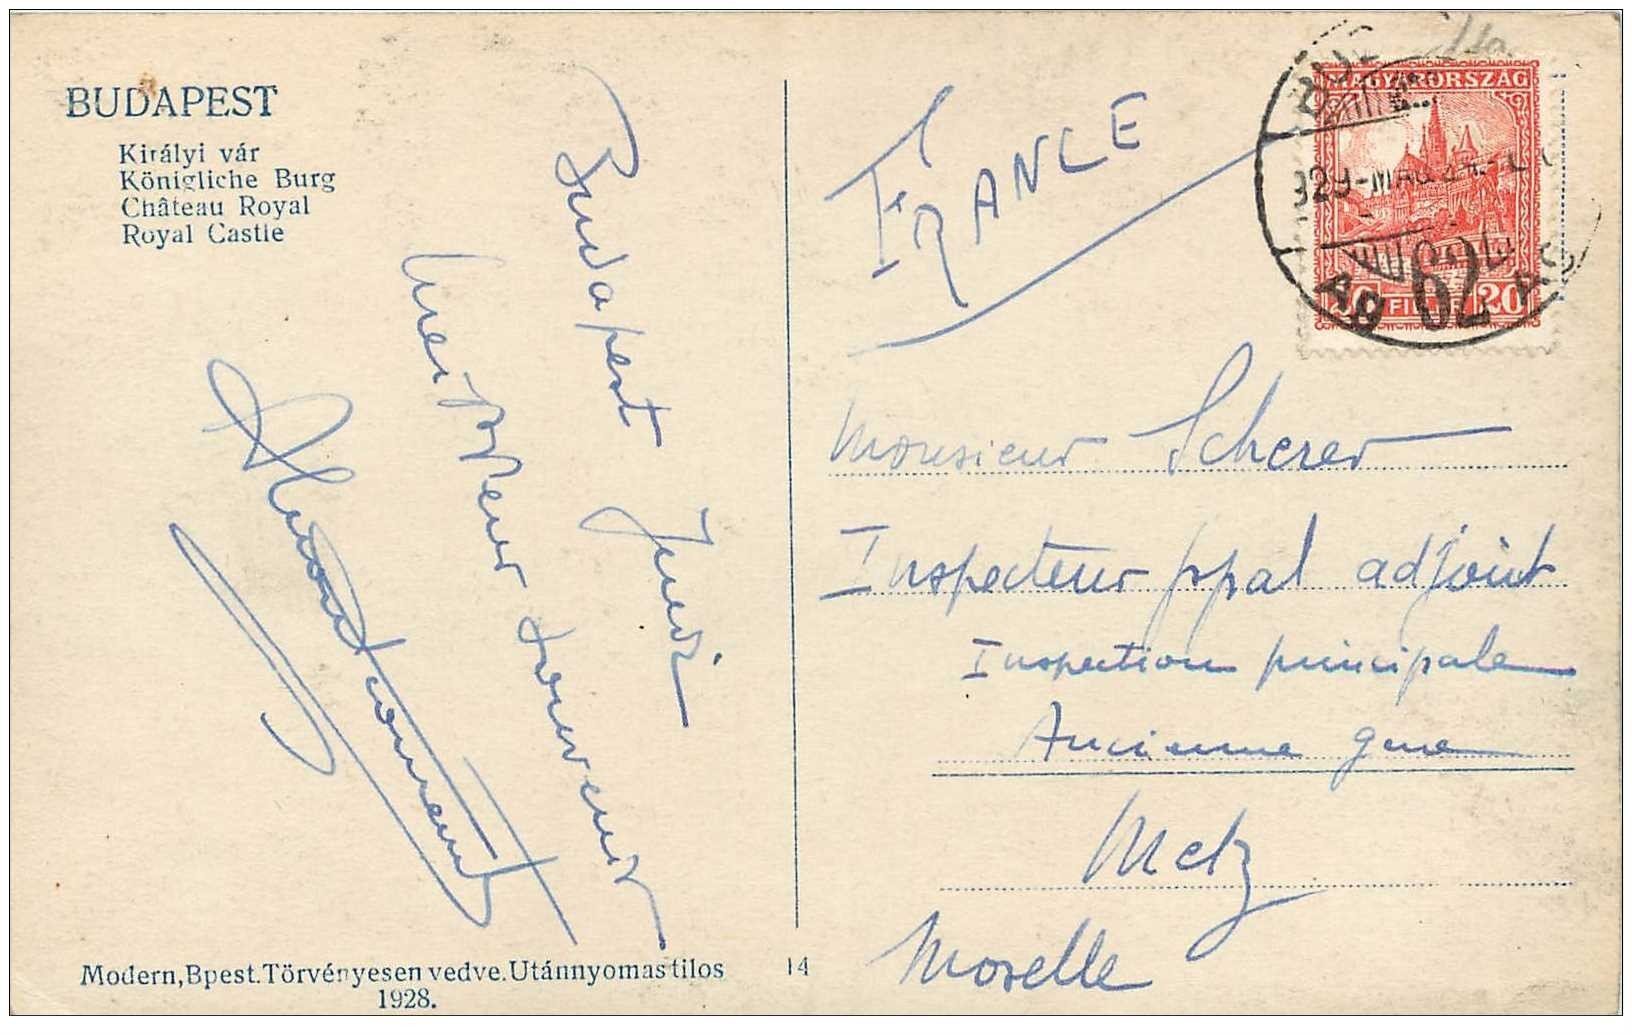 BUDAPEST
Királyi vár
Königliche Burg
Château Royal
Royal Castle
Budapest Jeudi
Meilleur souvenir
FRANCE
MAGYARORSZÁG
929-MAG
62
20 20
Monsieur Scherer
Inspecteur ppal adjoint
Inspection principale
Ancienne gare
Metz
Moselle
Modern, Bpest. Törvényesen vedve. Utánnyomas tilos
1928.
14